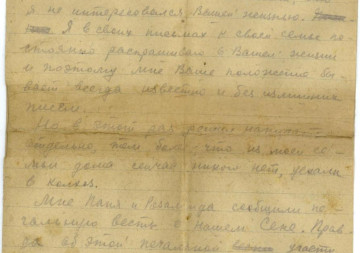 я не интересовался Вашей жизнью.
Я в своих письмах к своей семье по-
стоянно расспрашиваю о Вашей жизни
и поэтому мне Ваше положение бы-
вает всегда известно и без излишних
писем.
Но в этот раз решил написать
отдельно, тем более, что из моей се-
мьи дома сейчас никого нет, уехали
в колхоз.
Мне Паня и сообщили пе-
чальную весть о нашем Сене. Прав-
да об этой печальной участи